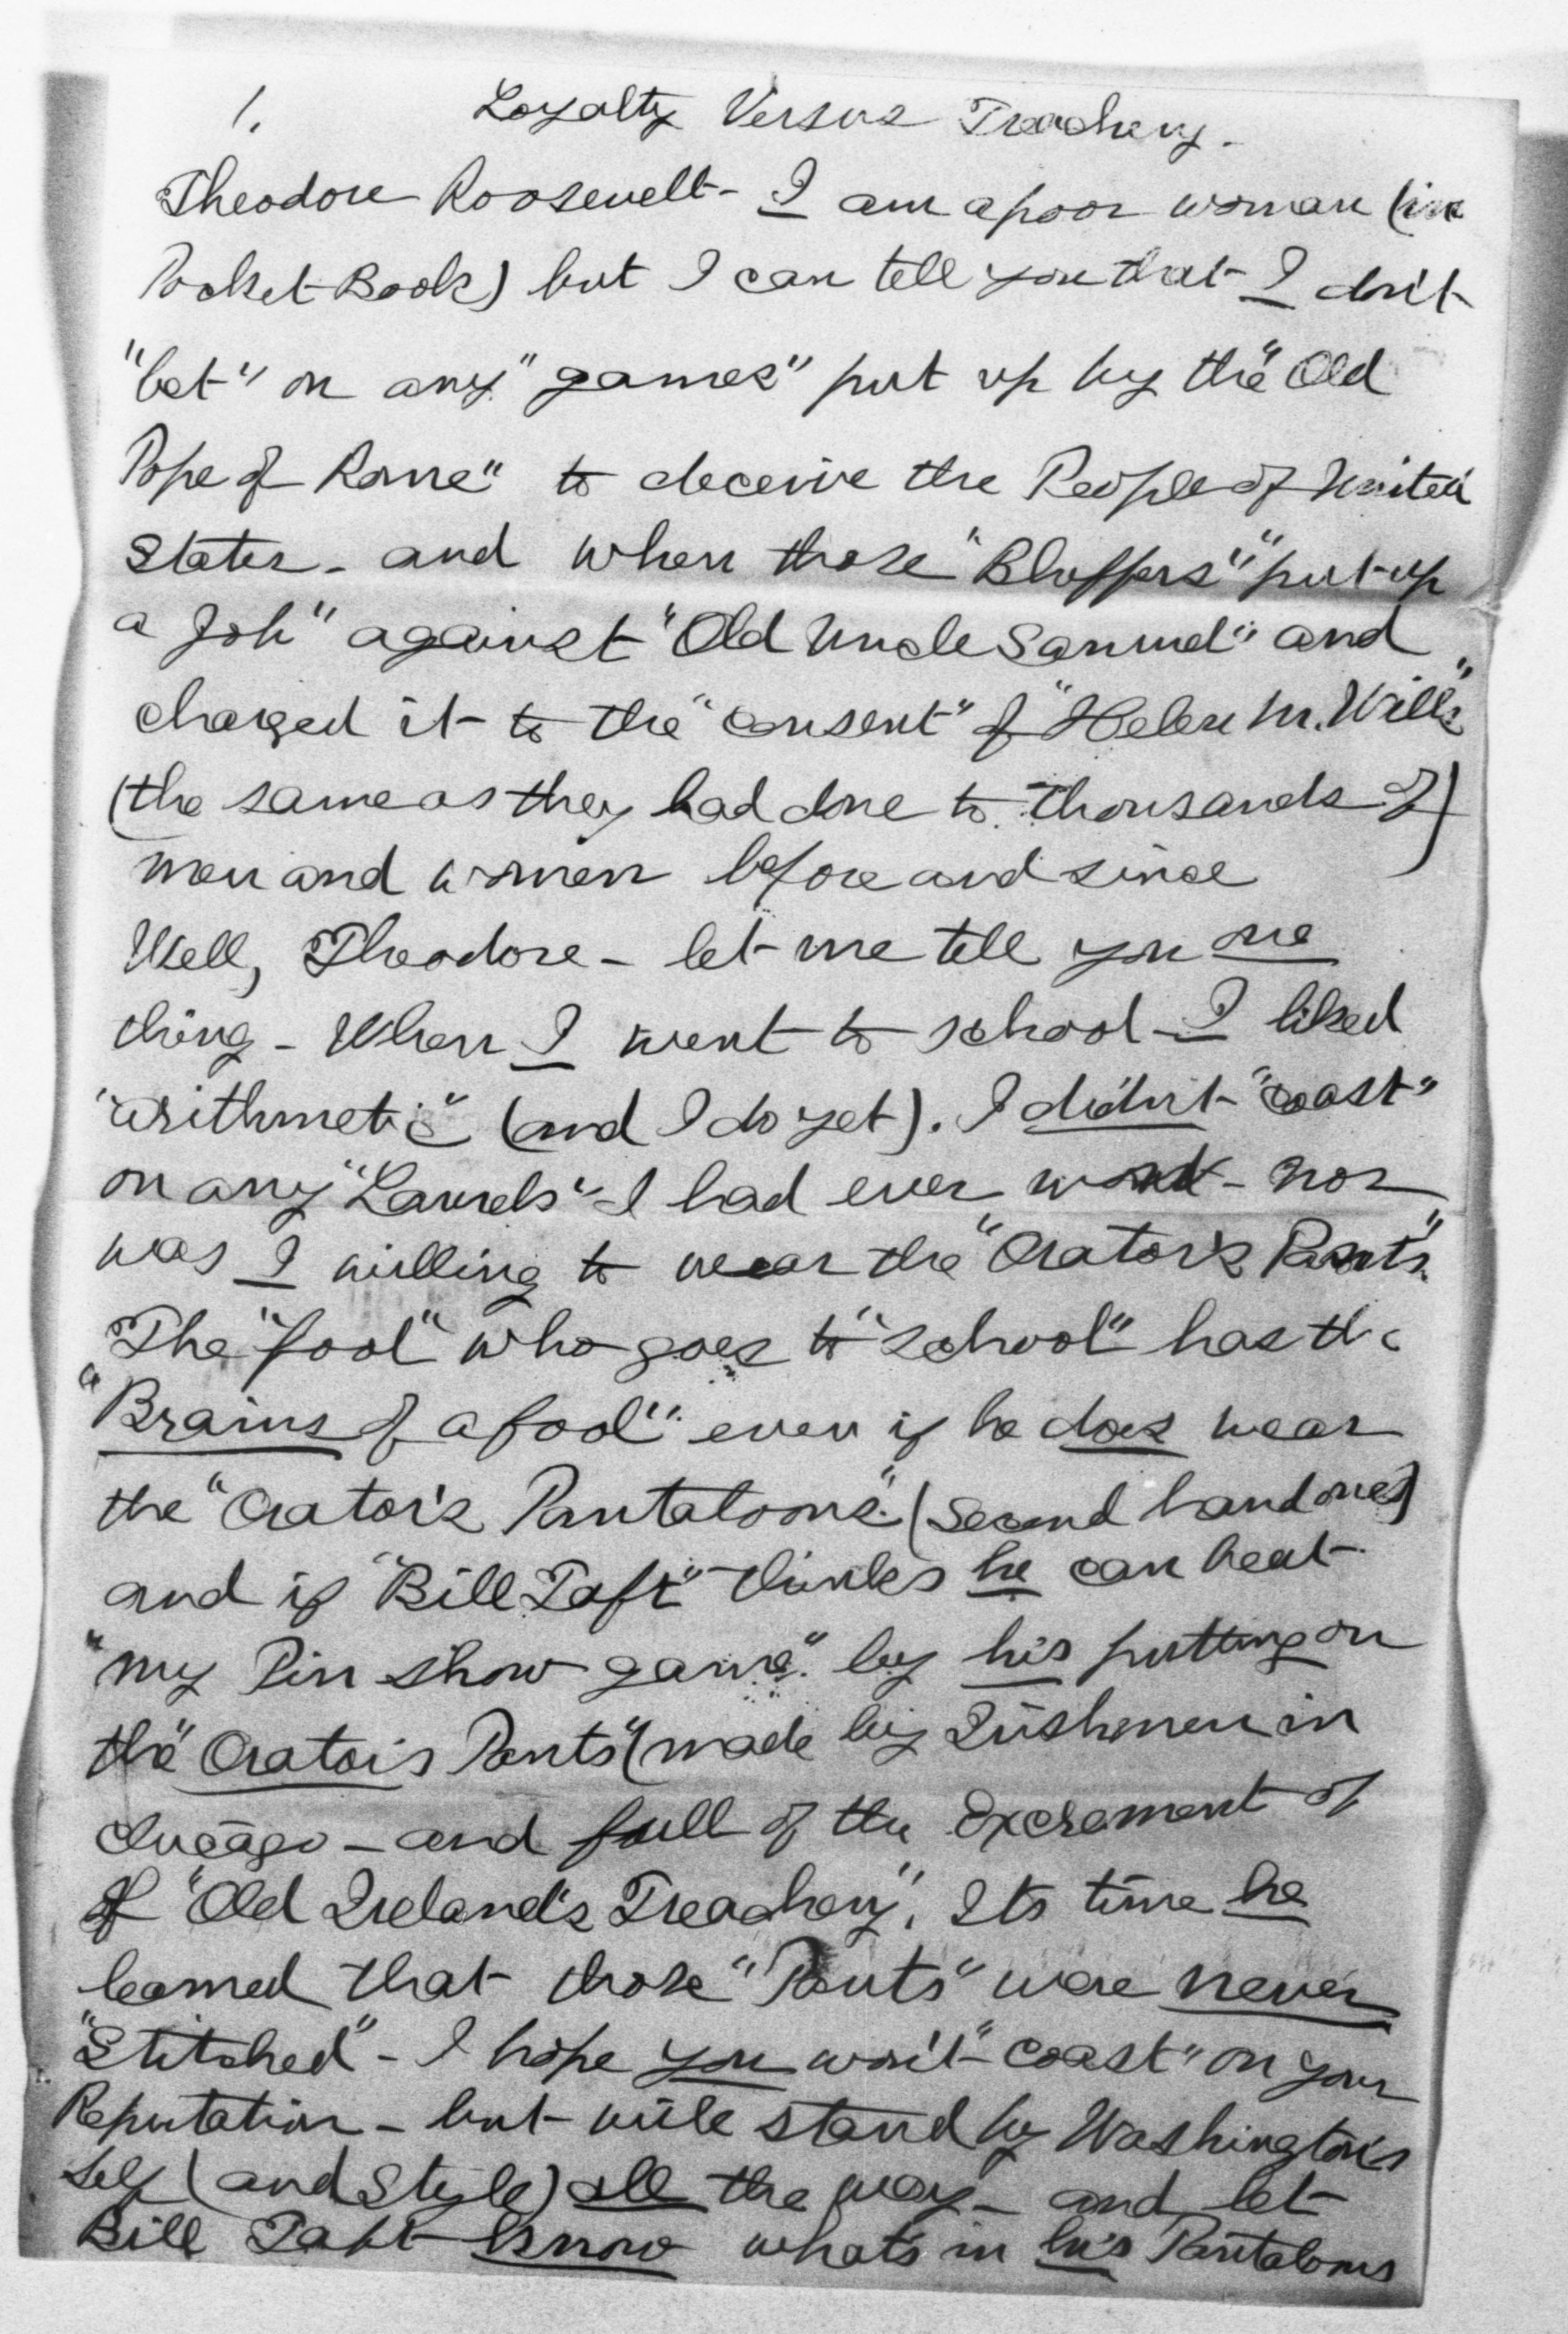 1. Loyalty Versus Treachery.
Theodore Roosevelt - I am a poor woman (in
Pocket Book) but I can tell you that I don't
"bet" on any "games" put up by the "Old
Pope of Rome" to deceive the People of United
States - and when those "Bluffers" "put up
a job" against "Old Uncle Samuel" and
charged it to the "consent" of "Helen M. Wills"
(the same as they had done to thousands of)
men and women before and since
Well, Theodore - let me tell you one
thing - When I went to school - I liked
"arithmetic" (and I do yet). I didn't "coast"
on any "Laurels" I had ever won - nor
was I willing to wear the "Orator's Pants".
The "fool" who goes to "school" has the
"Brains of a fool" even if he does wear
the "Orator's Pantaloons". (Second hand ones)
and if "Bill Taft" thinks he can beat
"my Pin show game" by his putting on
the "Orator's Pants" (made by Irishmen in
Chicago - and full of the Excrement of
of "Old Ireland's Treachery". Its time he
learned that those "Pants" were never
"Stitched" - I hope you won't "coast" on your
Reputation - but will stand by Washington's
Self (and Style) all the way - and let
Bill Taft know what's in his Pantaloons